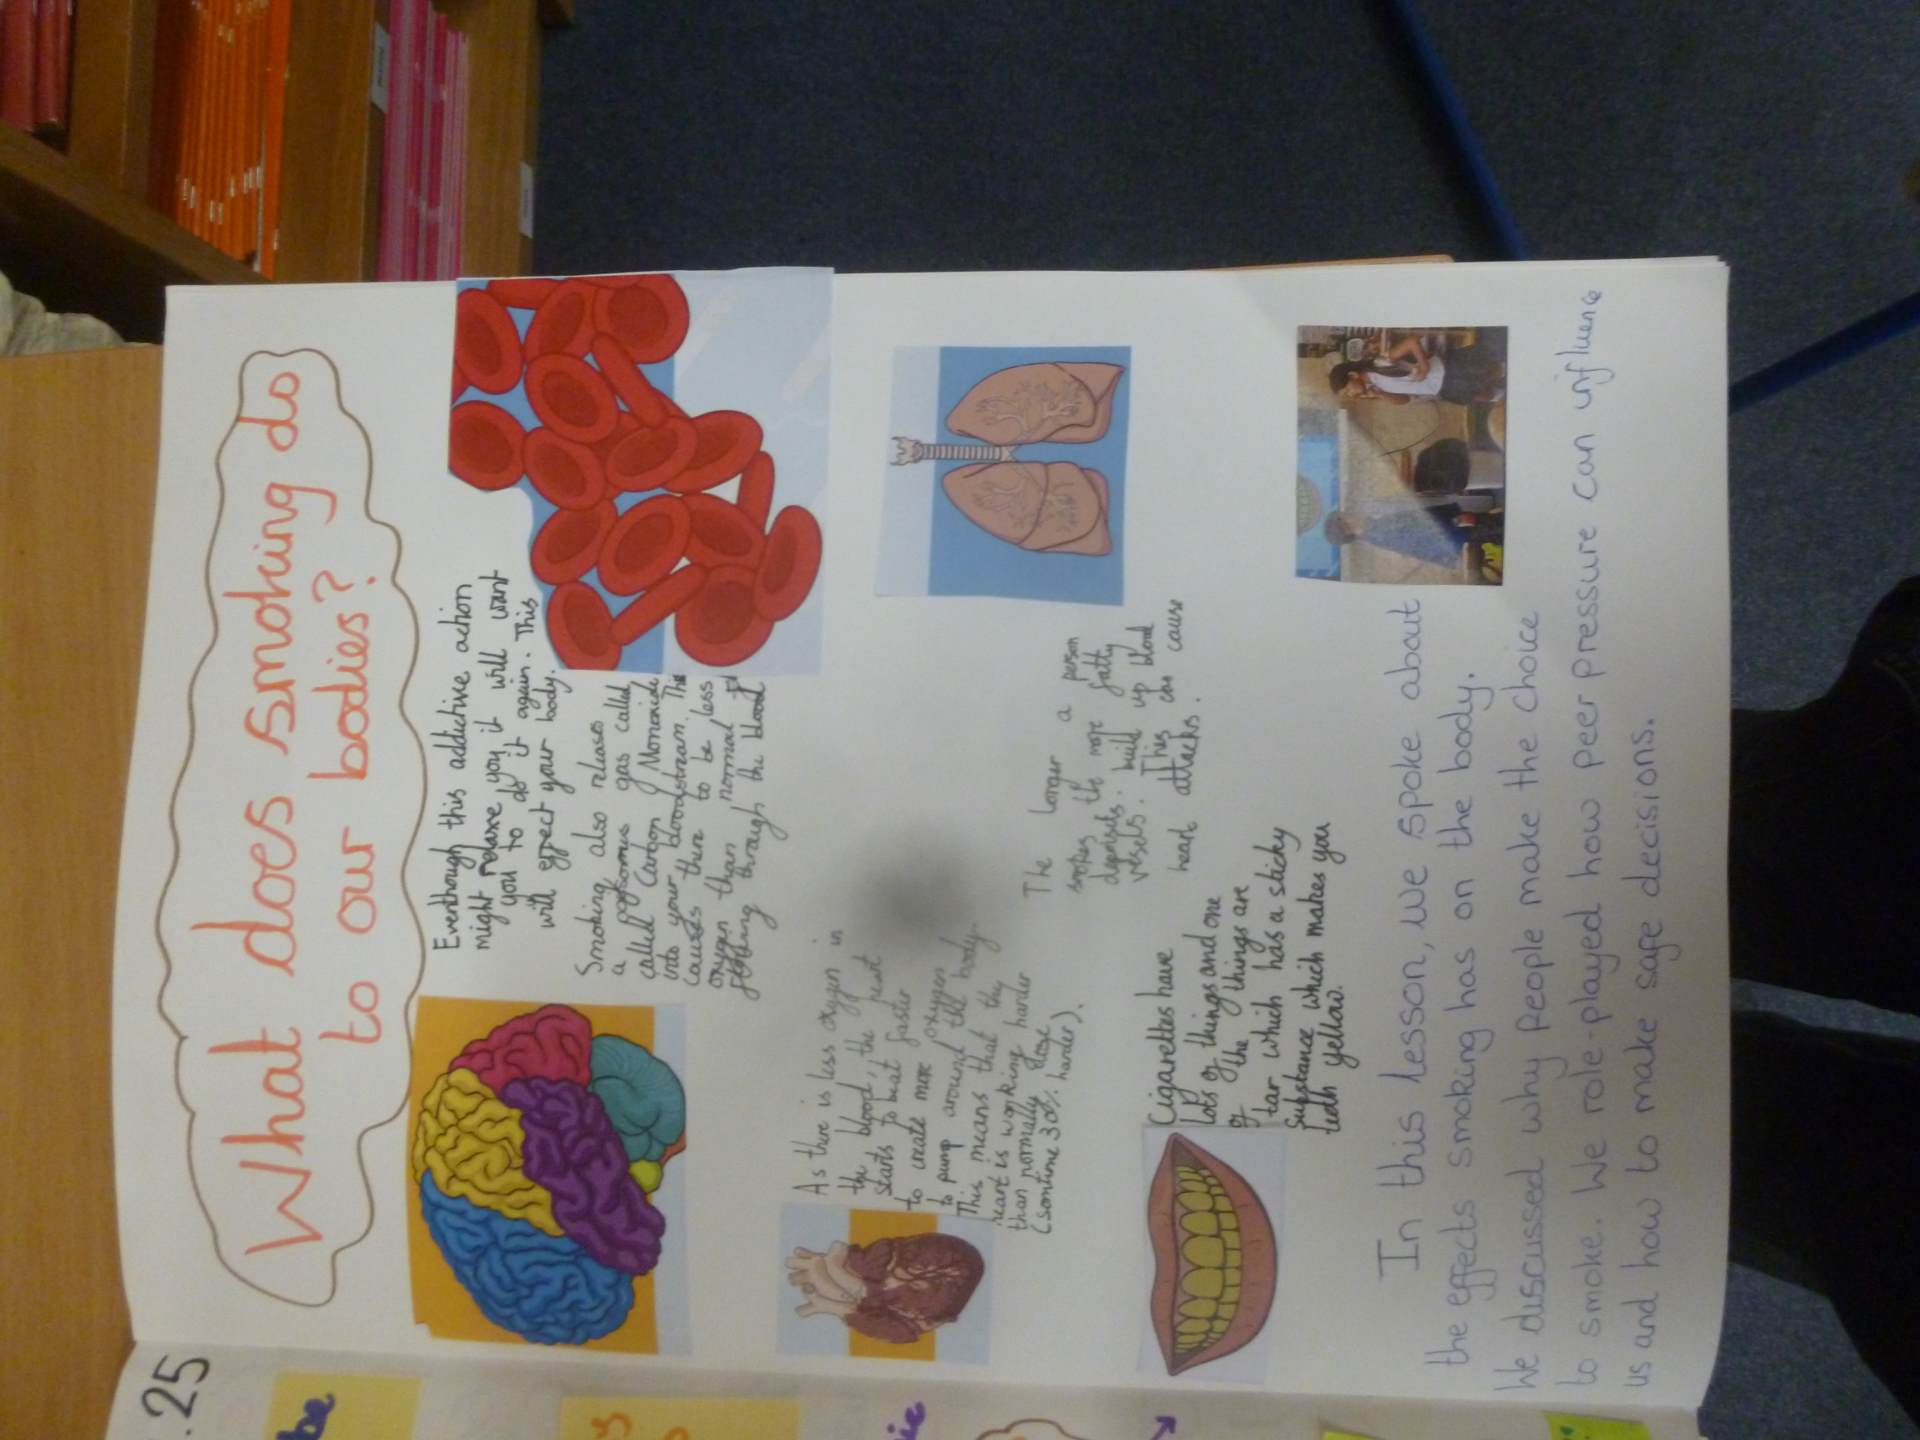 What does smoking do
to our bodies?
Eventhough this addictive action
might relaxe you it will want
you to do it again. This
will effect your body.
Smoking also releases
a gas called
called Carbon Monoxide
into your bloodstream. This
causes there to be less
oxygen than normal
flowing through the blood
As there is less oxygen in
the blood, the heart
starts to beat faster
to create more oxygen
to pump around the body.
This means that the
heart is working harder
than normally
(somtime 30% harder).
The longer a person
smokes the more fatty
deposits build up blood
vessels. This can cause
heart attacks.
Cigarettes have
lots of things and one
of the things are
tar which has a sticky
substance which makes you
teeth yellow.
In this lesson, we spoke about
the effects smoking has on the body.
We discussed why people make the choice
to smoke. We role-played how peer pressure can influence
us and how to make safe decisions.
.25
be